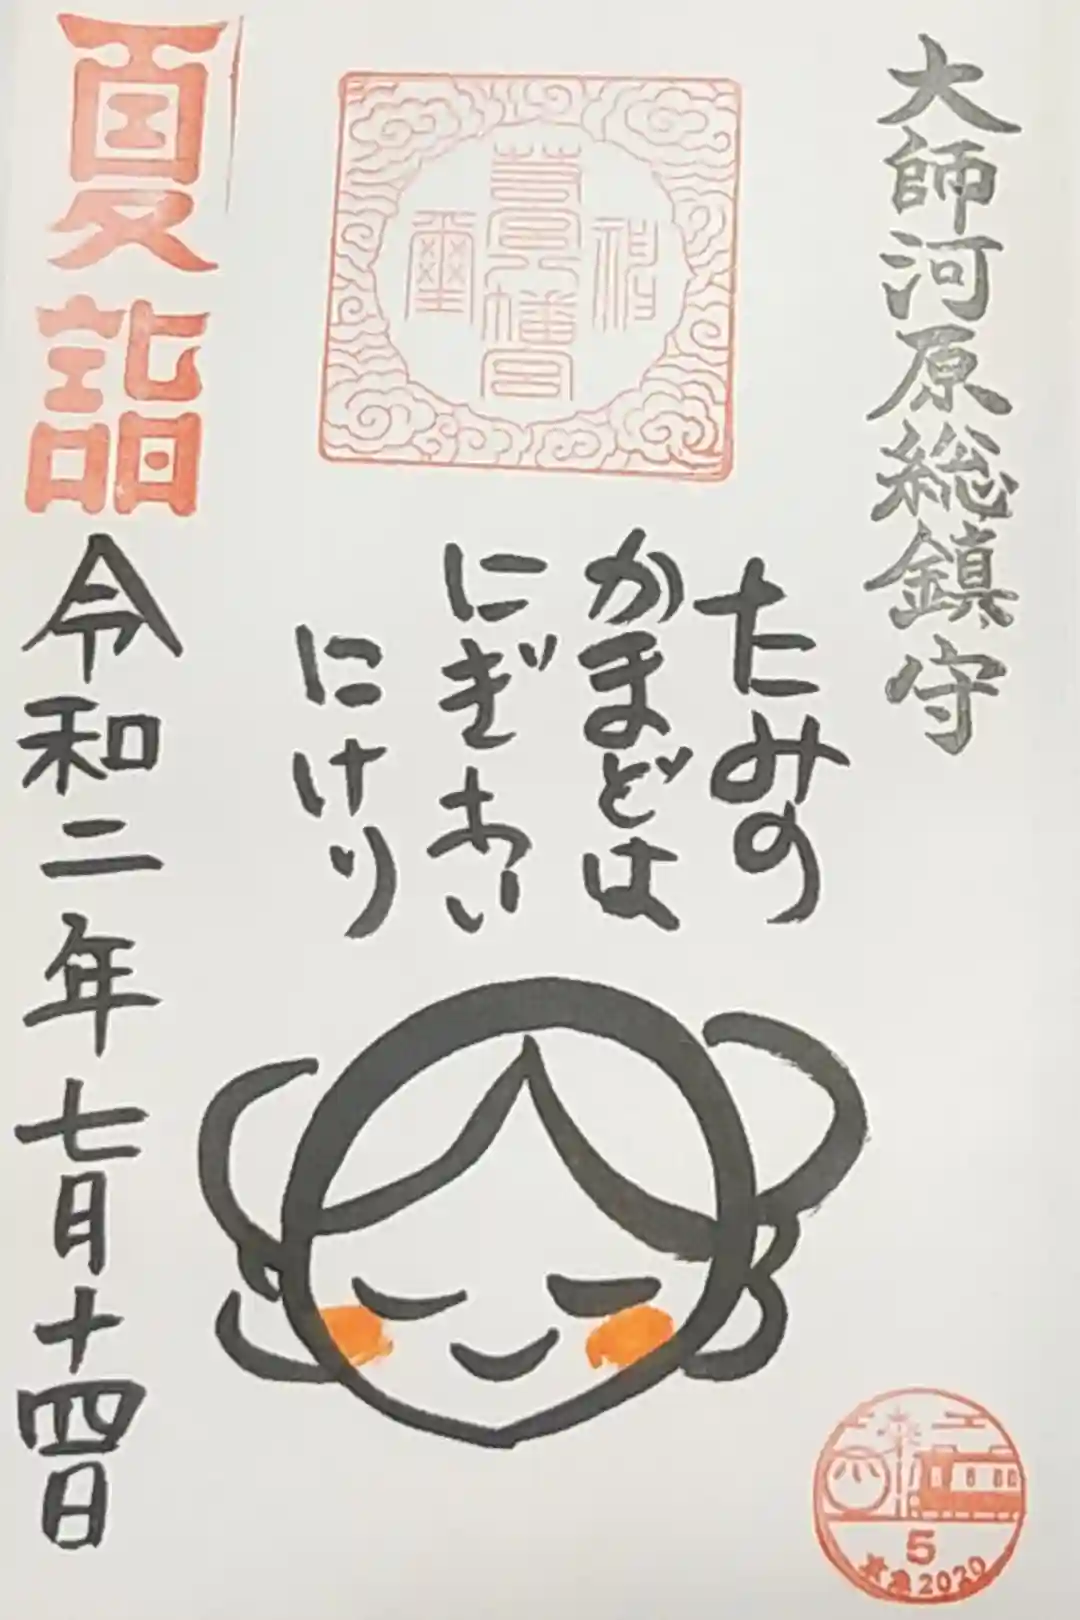 大師河原総鎮守
若宮八幡宮
たみの
かまどは
にぎわい
にけり
夏詣
令和二年七月十四日
5
京急2020